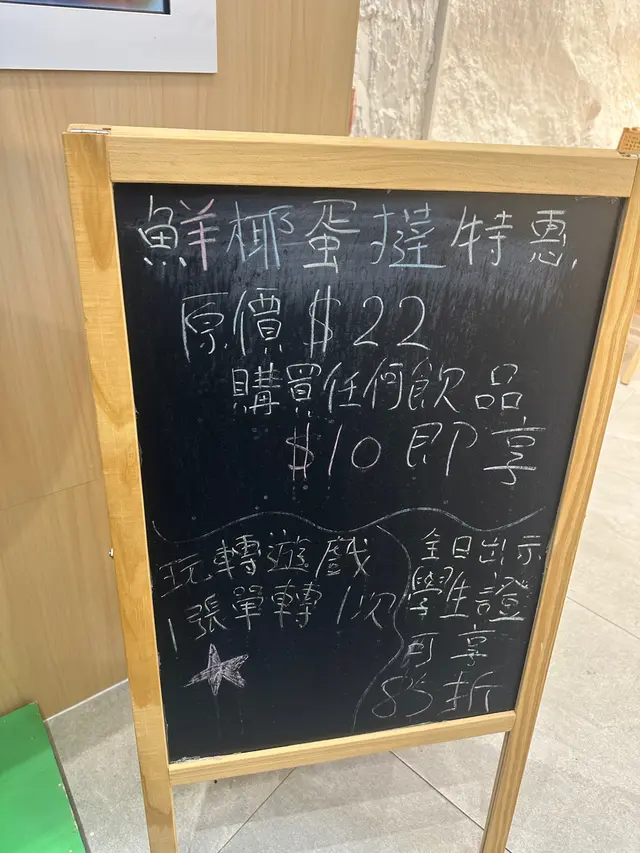 鮮椰蛋撻特惠
原價$22
購買任何飲品
$10即享
玩轉遊戲
1張單轉1次
全日出示
學生證
可享
85折